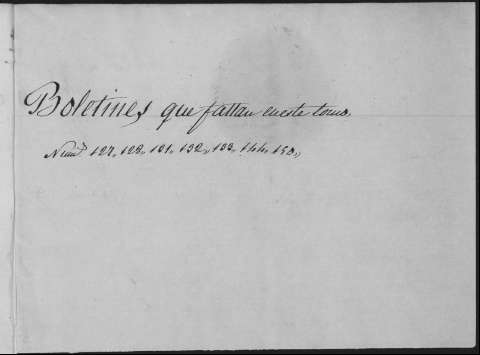 Boletines que faltan en este tomo.
Num.s 127, 128, 131, 132, 133, 144, 150,,